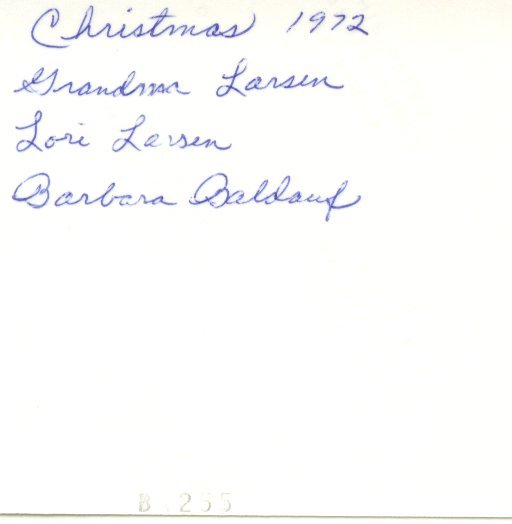 Christmas 1972
Grandma Larsen
Lori Larsen
Barbara Baldauf
B 255